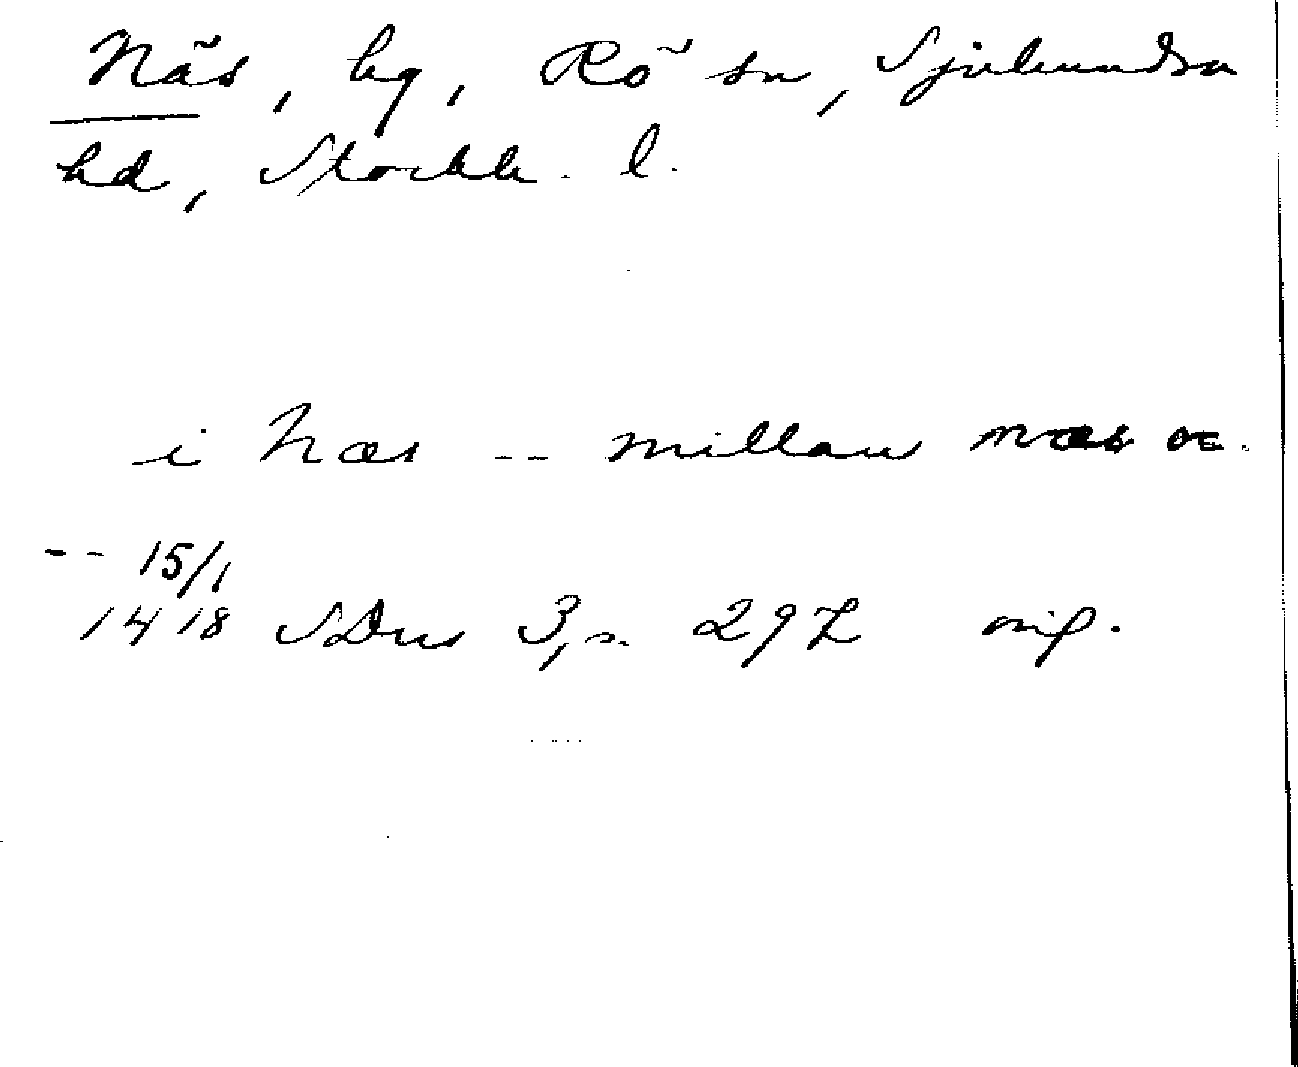 Näs, hg, Rö sn, Sjuhundra
hd, Stockh. l.
i Næs -- millan næs oc.
-- 15/1
1418 SDns 3, s. 297 orig.